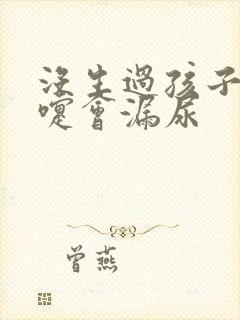 沒生過孩子
嚏會漏尿
曾燕